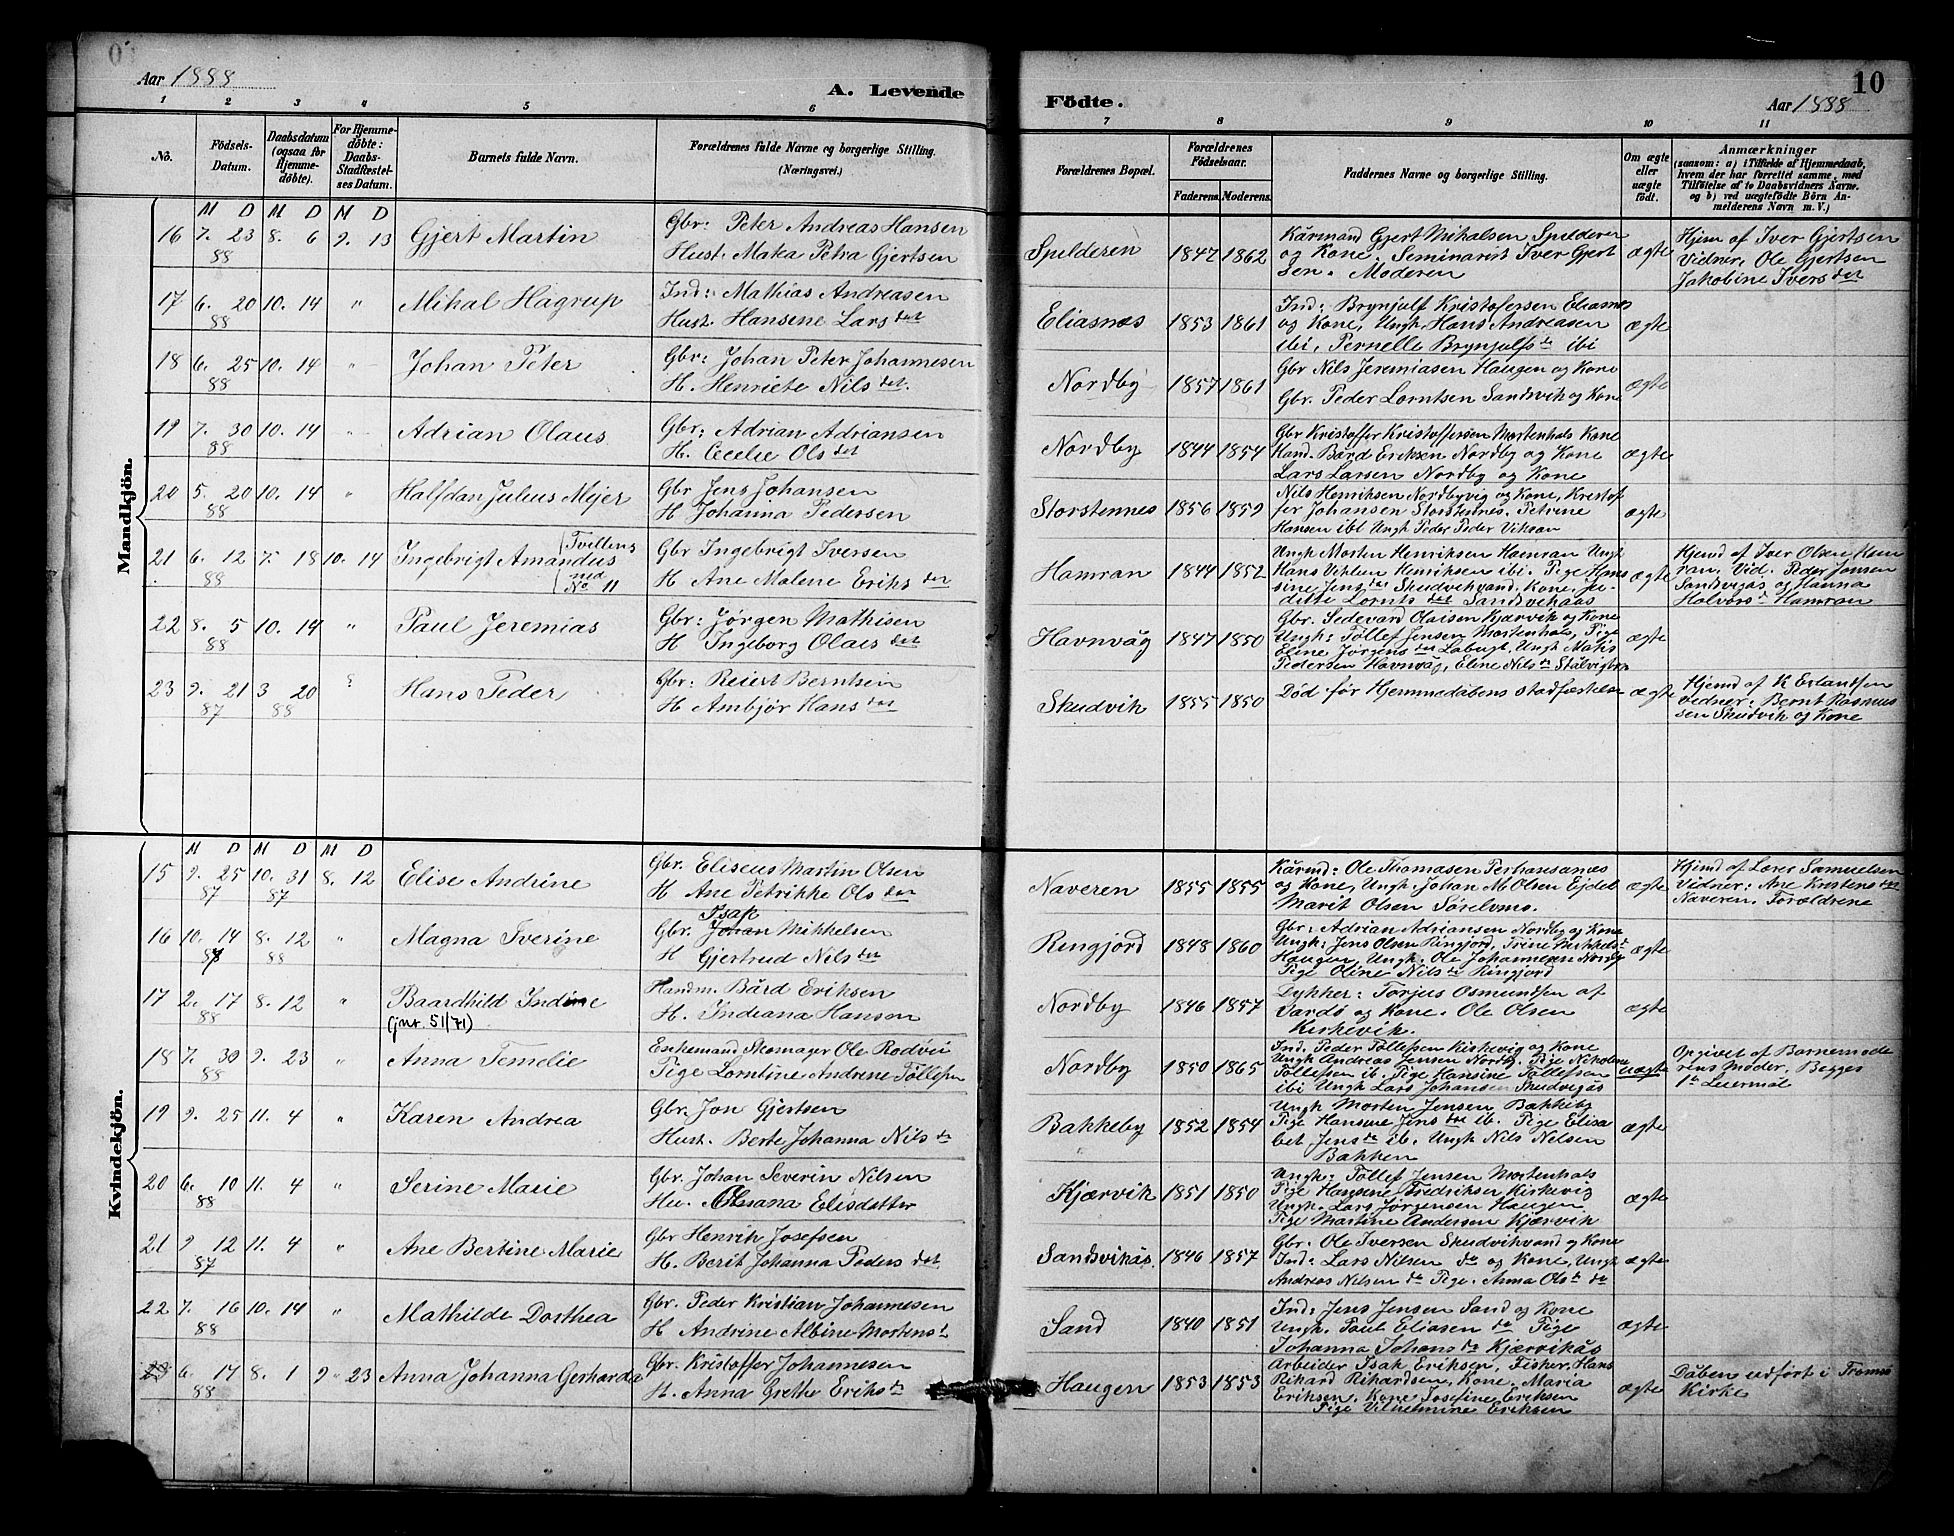 Aar 1888
A. Levende Födte.
10
Aar 1888
1 2 3 4 5 6 7 8 9 10 11
No.
Födsels-Datum.
Daabsdatum (ogsaa for Hjemmedöbte).
For Hjemmedöbte: Daabs-Stadfæstelses Datum.
Barnets fulde Navn.
Forældrenes fulde Navne og borgerlige Stilling. (Næringsvei.)
Forældrenes Bopæl.
Forældrenes Födselsaar.
Faderens. Moderens.
Faddernes Navne og borgerlige Stilling.
Om ægte eller uægte födt.
Anmærkninger
(saasom: a) i Tilfælde af Hjemmedaab, hvem der har forrettet samme, med Tilföielse af to Daabsvidners Navne, og b) ved uægtefödte Börn Anmelderens Navn m.V.)
Mandkjön.
M D M D M D
16 7. 23 88 8. 6 9. 13 Gjert Martin
Gbr: Peter Andreas Hansen
Hust. Maka Petra Gjertsen
Spilderen 1847 1862
Kårmand Gjert Mihalsen Spilderen
og Kone. Seminarist Iver Gjert
sen. Moderen
ægte
Hjem af Iver Gjertsen
Vidner, Ole Gjertsen
Jakobine Ivers det
17 6. 20 88 10. 14 " Mihal Hagrup
Ind: Mathias Andreasen
Hust. Hansine Lars det
Eliasnæs 1853 1861
Ind: Brynjulf Kristofersen Eliasnes
og Kone, Ungk. Hans Andreasen
ibi, Pernelle Brynjulfs dt ibi
ægte
18 6. 25 88 10. 14 " Johan Peter
Gbr: Johan Peter Johannesen
H. Henriete Nils det.
Nordby 1857 1861
Gbr Nils Jeremiasen Haugen og Kone
Gbr. Peder Lorntsen Sandvik og Kone
ægte
19 7. 30 88 10. 14 " Adrian Olaus
Gbr: Adrian Adriansen
H. Cecelie Ols det
Nordby 1844 1854
Gbr Kristoffer Kristoffersen Mortenhals Kone
Hand. Bård Eriksen Nordby og Kone
Lars Larsen Nordby og Kone
ægte
20 5. 20 88 10. 14 " Halfdan Julius Mejer
Gbr Jens Johansen
H Johanna Pedersen
Storstennes 1856 1859
Nils Henriksen Nordbyvig og Kone, Kristof
fer Johansen Storstennes. Petrine
Hansen ibt Ungk Peder Peder
ægte
21 6. 12 88 7. 18 10. 14 Ingebrigt Amandus
Tvilling med No 11
Gbr Ingebrigt Iversen
H Ane Malene Eriks det
Hamran 1844 1852
Ungk Morten Henriksen Hamran Ungk
Hans Vihlem Henriksen ibi. Pige Han
sine Jens det Skudvikvand. Kone, Ju
ditte Lornts det Sandvikaas
ægte
Hjemd af Iver Olsen Ham
ran. Vid. Peder Jonsen
Sandvigås og Hanna
Halvors d Hamran
22 8. 5 88 10. 14 " Paul Jeremias
Gbr: Jørgen Mathisen
H Ingeborg Olaus det
Havnvåg 1847 1850
Gbr. Sedevard Olaisen Kjærvik og Kone
Ungk: Tøllef Jensen Mortenhals, Pige
Eline Jørgens det Labugt. Ungk Mats
Pedersen Havnvåg, Eline Nils dt
ægte
23 9. 21 87 3 20 88 Hans Peder
Gbr: Reiert Berntsen
H Ambjør Hans det
Skudvik 1855 1850
Død før Hjemmedåbens stadfæstelse
ægte
Hjemd af K Erlandsen
Vidner: Bernt Rasmus
sen Skudvik og Kone
Kvindekjön.
M D M D M D
15 9. 25 87 10. 31 87 8. 12 Elise Andrine
Gbr. Eliseus Martin Olsen
H Ane Petrikke Ols det
Naveren 1855 1855
Kårmd: Ole Thomasen
og Kone, Ungk. Johan M. Olsen
Marit Olsen
ægte
Hjemd af Lars Samuelsen
Vidner: Ane Kristens det
Naveren. Forældrene
16 10. 14 8. 12 88 " Magna Iverine
Isak
Gbr. Johan Mikkelsen
H Gjertrud Nils det
Ringjord 1848 1860
Gbr: Adrian Adriansen Nordby og Kone
Ungk: Jens Olsen Ringjord, Trine Mikkels dt
Haugen, Ungk: Ole Johannesen Nordby
Pige Oline Nils dt Ringjord
ægte
17 2. 17 88 8. 12 " Baardhild Indine
(jnr. 51/71)
Handm. Bård Eriksen
H. Indiana Hansen
Nordby 1846 1857
Dykker: Torjus Osmundsen af
Vardø og Kone. Ole Olsen
Kirkevik.
ægte
18 7. 30 88 9. 23 " Anna Temelie
Enkemand Skomager Ole Rodvei
Pige Lorntine Andrine Tøllefsen
Nordby 1850 1865
Ind. Peder Tøllefsen Kirkevig og Kone
Ungk Andreas Jensen Nordby. Pige Nikoline
Tøllefsen ib, Pige Hansine Tøllefsen
ibi Ungk Lars Johansen Skudvigås
uægte
Opgivet af Barnemode
rens Moder, Begges
1te Leiermål
19 9. 25 11. 4 " Karen Andrea
Gbr. Jon Gjertsen
Hust. Berte Johanna Nils dt
Bakkeby 1852 1854
Ungk Morten Jensen Bakkeby
Pige Hansine Jens det ib. Pige Elisa
bet Jens dt ib. Ungk Nils Nilsen
Bakken
ægte
20 6. 10 88 11. 4 " Serine Marie
Gbr. Johan Severin Nilsen
Hu. Elisdatter
Kjærvik 1851 1850
Ungk: Tøllef Jensen Mortenhals
Pige Hansine Fredriksen Kirkevig
Ungk. Lars Jørgensen Haugen
Pige Martine Andersen Kjærvik
ægte
21 9 12 87 11. 4 " Ane Bertine Marie
Gbr Henrik Josefsen
H. Berit Johanna Peders det
Sandvikås 1846 1857
Gbr. Ole Iversen Skudvikvand og Kone
Ind: Lars Nilsen do og Kone, Ungk
Andreas Nilsen do Pige. Anna Ols dt do
ægte
22 7. 16 88 10. 14 " Mathilde Dorthea
Gbr. Peder Kristian Johannesen
H Andrine Albine Mortens dt
Sand 1840 1851
Ind: Jens Jensen Sand og Kone
Ungk. Paul Eliasen do Pige
Johanna Johans dt Kjærvikås
ægte
23 6. 17 88 8. 1 9 23 Anna Johanna Gerharda
Gbr. Kristoffer Johannesen
H. Anna Grethe Eriks dt
Haugen 1853 1853
Arbeider Isak Eriksen, Fisker. Hans
Rikard Rikardsen, Kone, Maria
Eriksen, Kone Josefine Eriksen
Pige Vilhelmine Eriksen
ægte
Dåben udført i Tromsø
Kirke